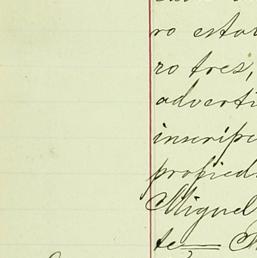 ro esta
ro tres,
adverti
inscripc
propied
Miguel
te